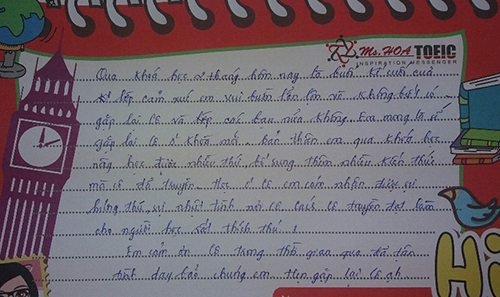 Ms. HOA TOEIC
INSPIRATION MESSENGER
Qua khoá học 2 thaág hôm nay là buổi kí cuối của
lớp cảm xúc em vui buồn lẫn lộn vì không biết có
gặp lại cô và lớp các bạn nữa không. Em mong là sẽ
gặp lại cô ở khoá mới. Bản thân em qua khoá học
này học được nhiều thứ bổ sung thêm nhiều kiến thức
mà cô đã truyền. Học ở cô em cảm nhận được sự
hứng thú, sự nhiệt tình nơi cô cách cô truyền đạt làm
cho người học rất thích thú!
Em cảm ơn cô trong thời gian qua đã tận
tình dạy bảo chúng em. Hẹn gặp lại cô ạh
Hi